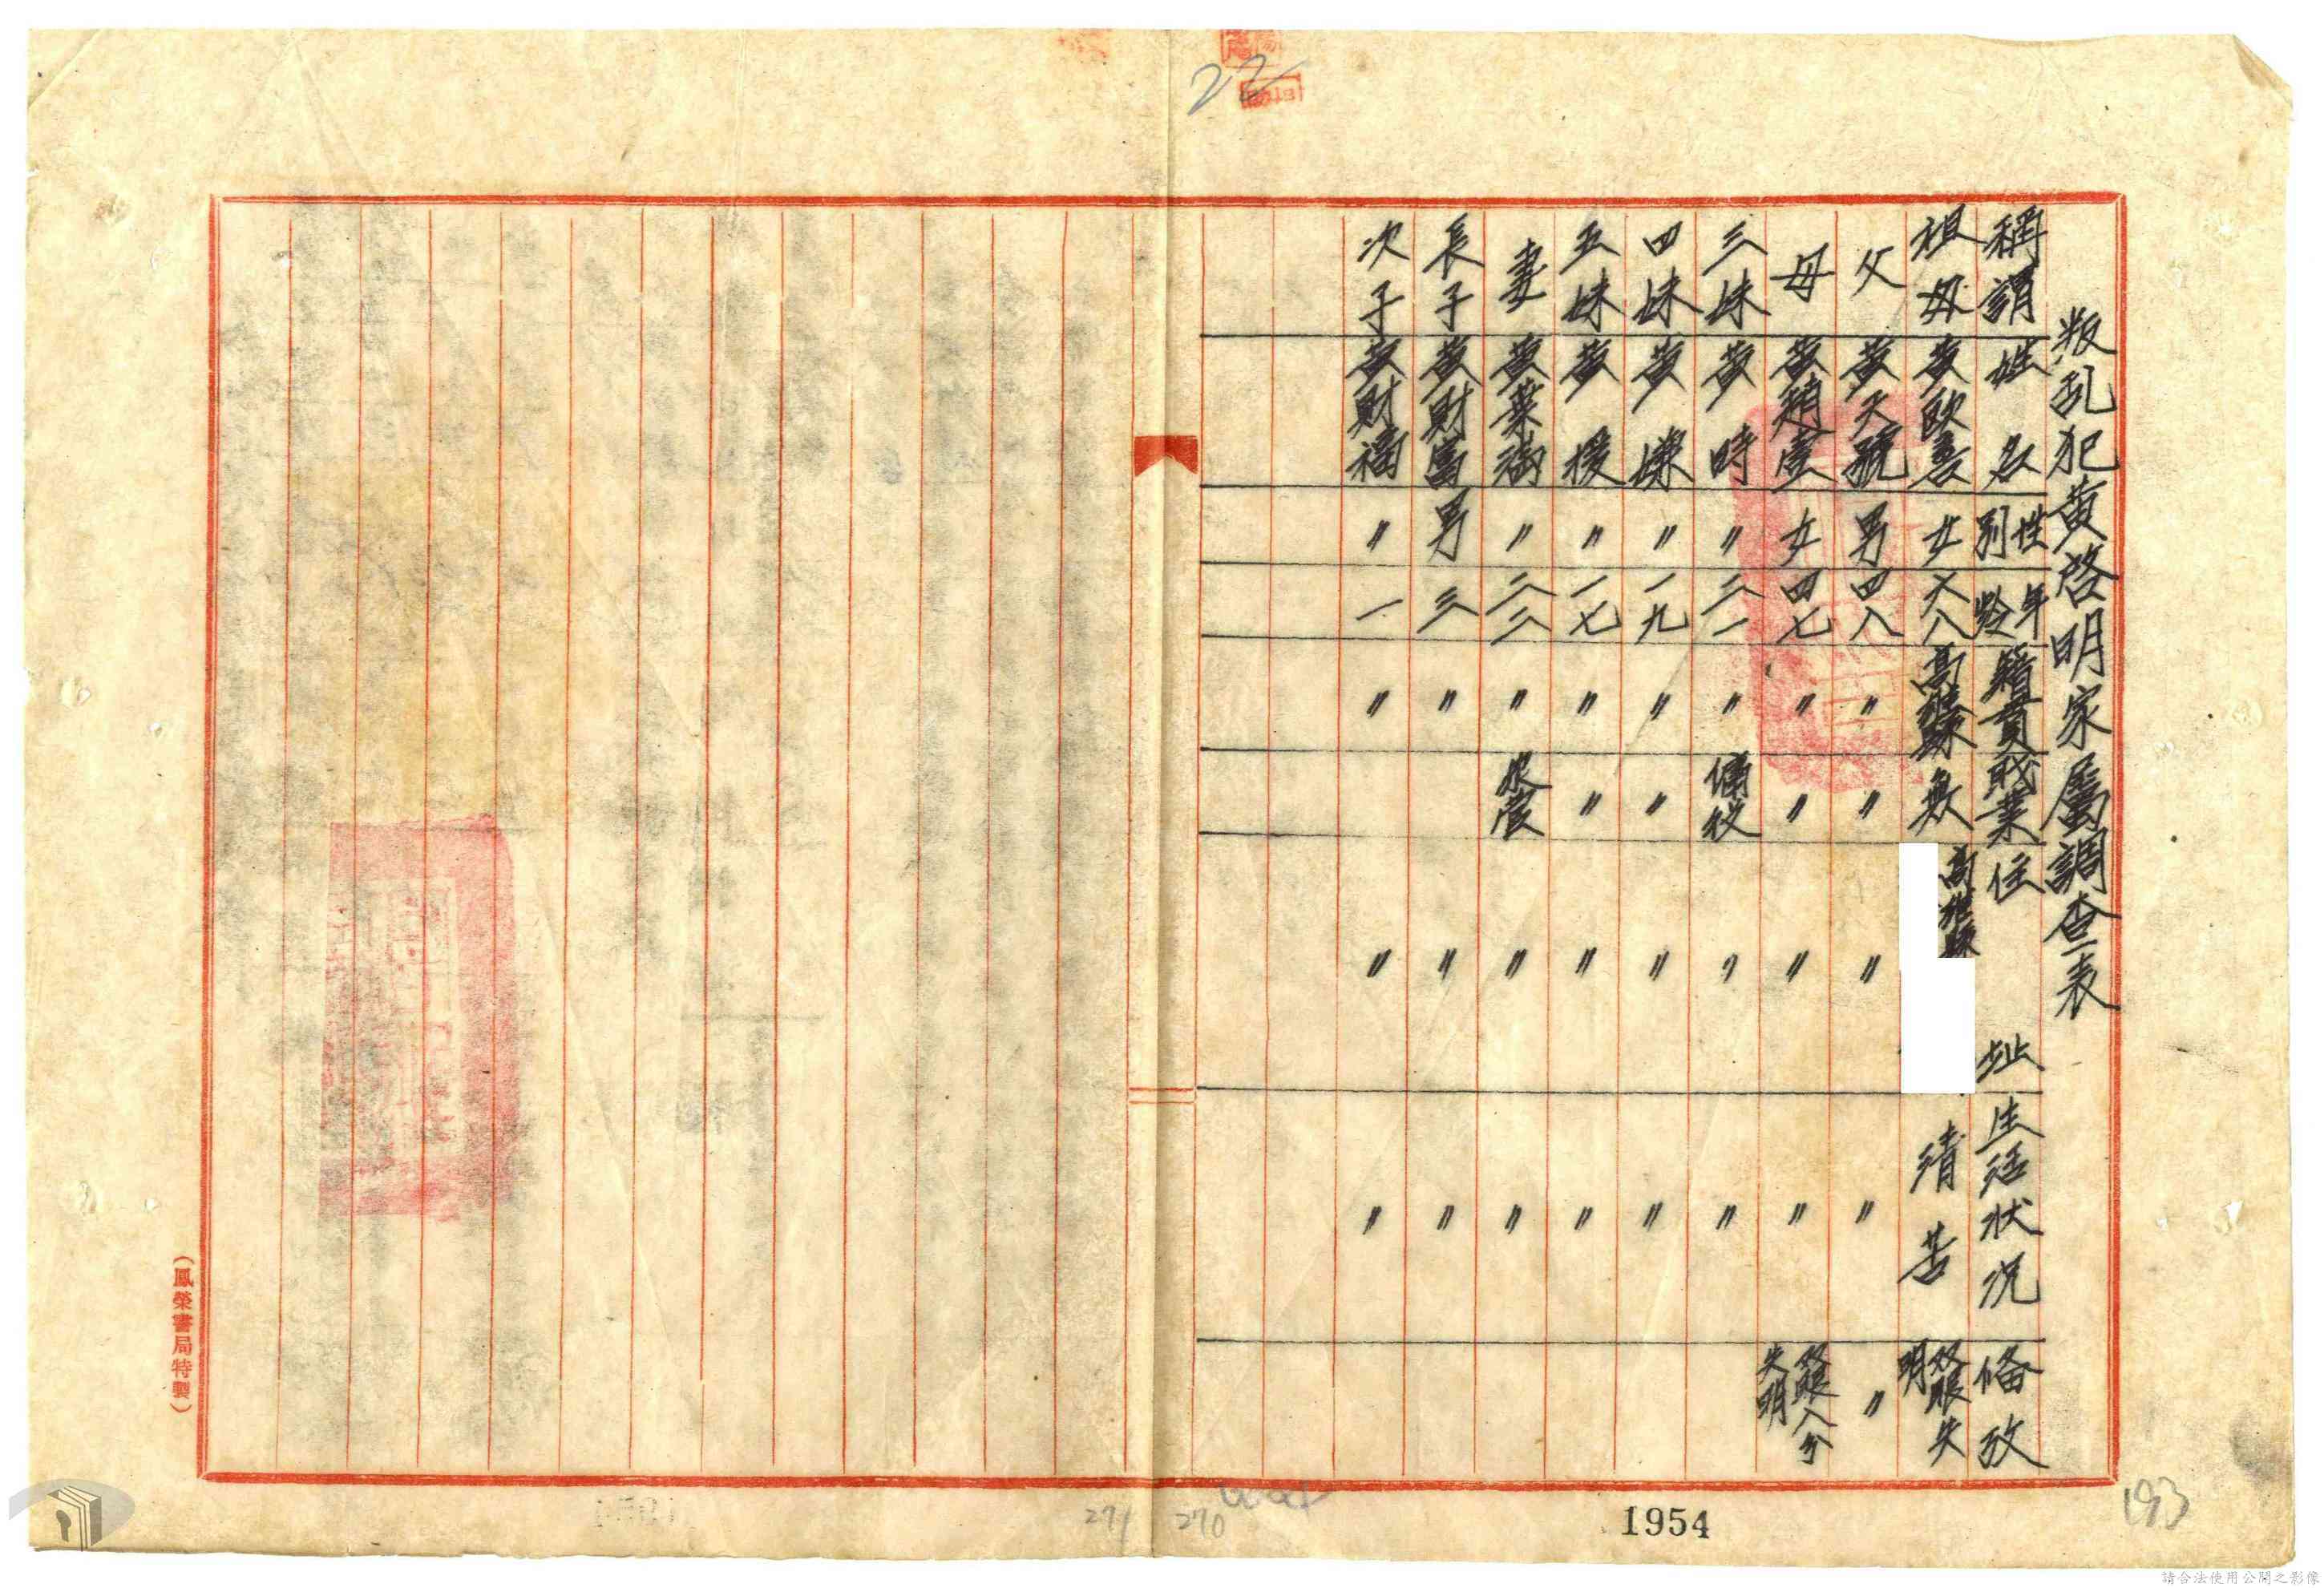 叛乱犯黄啓明家屬調查表
稱謂 姓名 性別 年齡 籍貫 職業 住址 生活狀況 備攷
祖母 黄歐善 女 六八 高雄縣 無 高雄縣 清苦 双眼失明
父 黄天號 男 四八 〃 〃 〃 〃 〃
母 黄趙壹 女 四七 〃 〃 〃 〃 双眼八分失明
三妹 黄時 〃 二一 〃 傭役 〃 〃
四妹 黄 〃 一九 〃 〃 〃 〃
五妹 黄 〃 一七 〃 〃 〃 〃
妻 黄葉 〃 二二 〃 農 〃 〃
長子 黄財富 男 三 〃 〃 〃
次子 黄財福 〃 一 〃 〃 〃
(鳳榮書局特製)
22
271
270
1954
193
請合法使用公開之影像